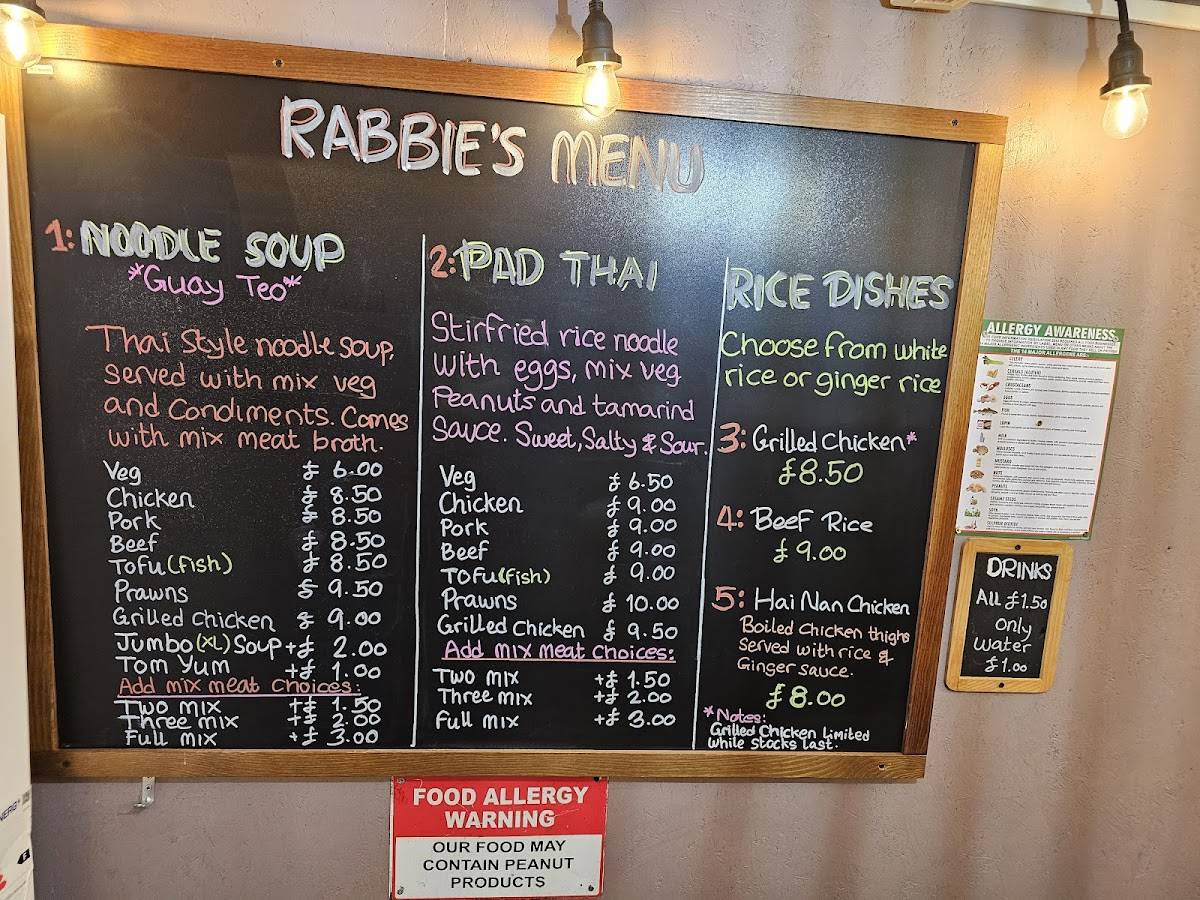 RABBIE'S MENU
1: NOODLE SOUP
*Guay Teo*
Thai Style noodle soup.
served with mix veg
and Condiments. Comes
with mix meat broth.
Veg £ 6.00
Chicken £ 8.50
Pork £ 8.50
Beef £ 8.50
Tofu (fish) £ 8.50
Prawns £ 9.50
Grilled Chicken £ 9.00
Jumbo (XL) Soup +£ 2.00
Tom Yum +£ 1.00
Add mix meat Choices:
Two mix +£ 1.50
Three mix +£ 2.00
Full mix +£ 3.00
2: PAD THAI
Stirfried rice noodle
with eggs, mix veg
Peanuts and tamarind
Sauce. Sweet, Salty & Sour.
Veg £ 6.50
Chicken £ 9.00
Pork £ 9.00
Beef £ 9.00
TOFU (fish) £ 9.00
Prawns £ 10.00
Grilled Chicken £ 9.50
Add mix meat Choices:
Two mix +£ 1.50
Three mix +£ 2.00
Full mix +£ 3.00
RICE DISHES
Choose from white
rice or ginger rice
3: Grilled Chicken*
£8.50
4: Beef Rice
£ 9.00
5: Hai Nan Chicken
Boiled Chicken thighs
Served with rice &
Ginger sauce.
£ 8.00
*Notes:
Grilled Chicken Limited
While stocks last.
ALLERGY AWARENESS
THE 14 MAJOR ALLERGENS ARE:
CELERY
CRUSTACEANS
EGGS
FISH
LUPIN
MILK
MOLLUSCS
MUSTARD
NUTS
PEANUTS
SESAME SEEDS
SOYA
SULPHUR DIOXIDE
DRINKS
All £1.50
only
water
£1.00
FOOD ALLERGY
WARNING
OUR FOOD MAY
CONTAIN PEANUT
PRODUCTS